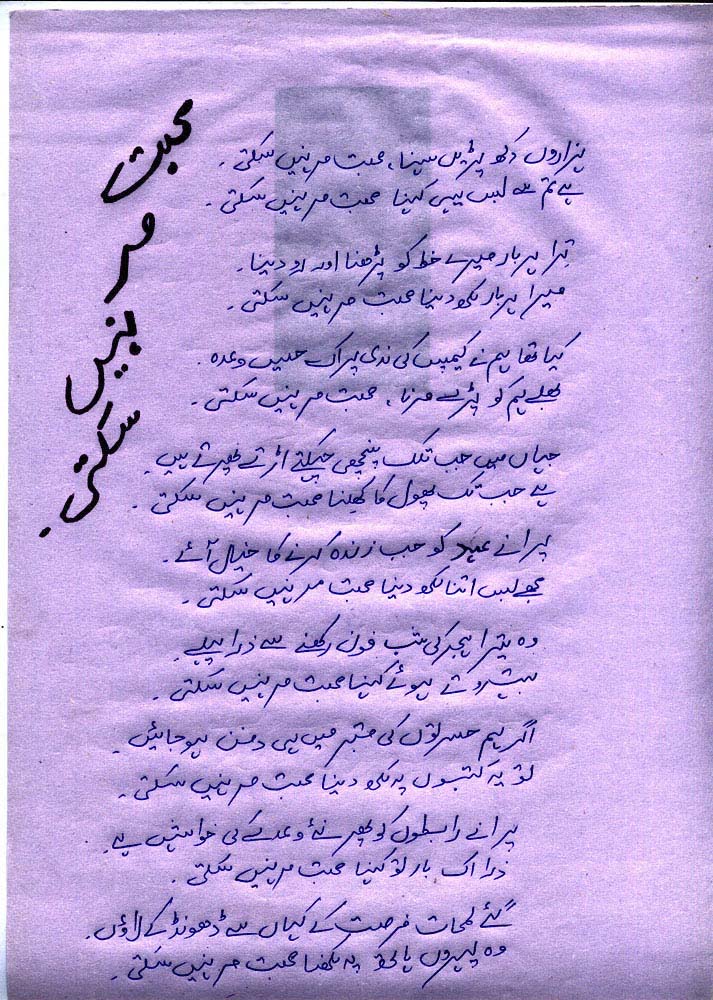 محبت مر نہیں سکتی۔
ہزاروں دکھ پڑیں سہنا، محبت مر نہیں سکتی۔
ہے تم سے بس یہی کہنا محبت مر نہیں سکتی۔
ترا ہر بار میرے خط کو پڑھنا اور رو دینا۔
میرا ہر بار لکھ دینا محبت مر نہیں سکتی۔
کیا تھا ہم نے کیمپس کی ندی پر اک حسیں وعدہ۔
بھلے ہم کو پڑے مرنا، محبت مر نہیں سکتی۔
جہاں میں جب تلک پنچھی چہکتے اڑتے پھرتے ہیں۔
ہے جب تک پھول کا کھلنا محبت مر نہیں سکتی۔
پرانے عہد کو جب زندہ کرنے کا خیال آئے۔
مجھے بس اتنا لکھ دینا محبت مر نہیں سکتی۔
وہ تیرا ہجر کی شب فون رکھنے سے ذرا پہلے۔
بہت روتے ہوئے کہنا محبت مر نہیں سکتی۔
اگر ہم حسرتوں کی قبر میں ہی دفن ہو جائیں۔
تو یہ کتبوں پہ لکھ دینا محبت مر نہیں سکتی۔
پرانے رابطوں کو پھر نئے وعدے کی خواہش ہے۔
ذرا اک بار تو کہنا محبت مر نہیں سکتی۔
گئے لمحات فرصت کے کہاں سے ڈھونڈ کے لاؤں۔
وہ پہروں ہاتھ پہ لکھنا محبت مر نہیں سکتی۔